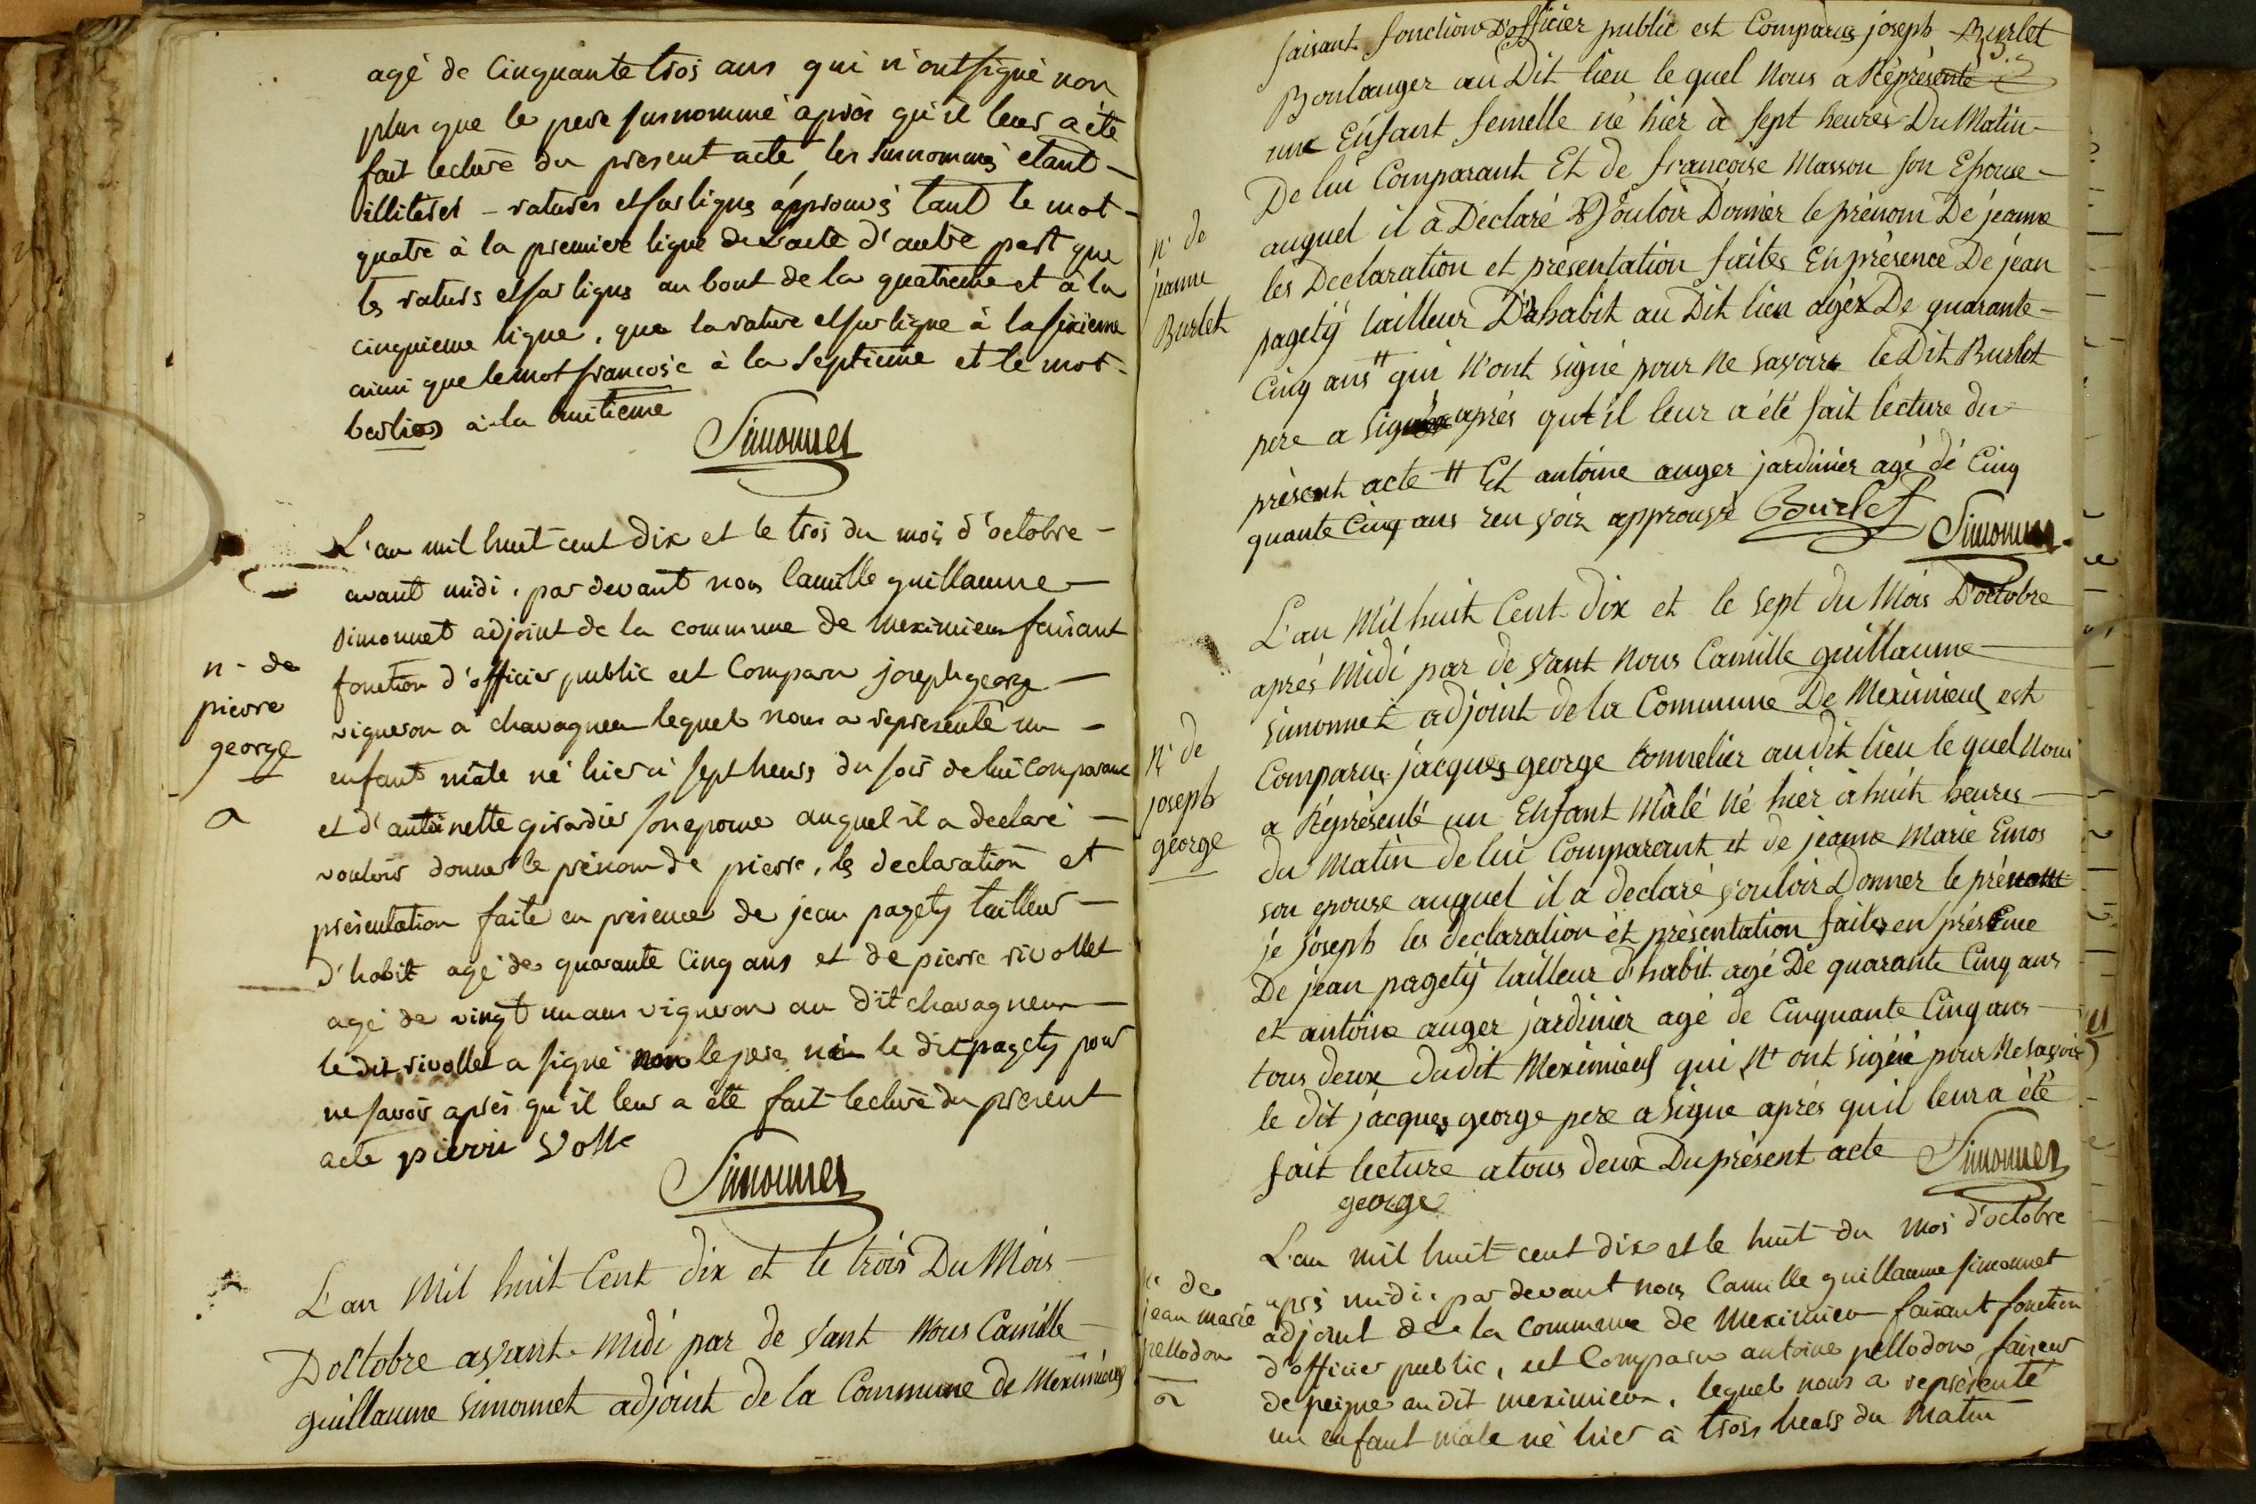 agé de Cinquante trois ans qui n'ont signé non
plus que le pere susnommé après qu'il leur a été
fait lecture du present acte les susnommés etant
illiterés - ratures et surlignes approuvés tant le mot
quatre à la premiere ligne de l'acte d'autre part que
les raturs et surligns au bout de la quatrieme et à la
cinquieme ligne, que la rature et surligne à la sixieme
ainsi que le mot francoise à la septieme et le mot
berlios à la huitieme
Simonnet
L'an mil huit cent dix et le trois du mois d'octobre
avant midi, par devant nous Camille guillaume
simonnet adjoint de la commune de meximieux faisant
fonction d'officier public est Comparu joseph george
n. de
pierre
george
vigneron à chavagneu lequel nous a representé un
enfant mâle né hier à sept heurs du soir de lui Comparant
et d'antoinette girardier son epouse auquel il a declaré
vouloir donner le prénom de pierre, les declaration et
présentation faite en présence de jean pagety tailleur
d'habit agé de quarante Cinq ans et de pierre rivollet
agé de vingt un ans vigneron au dit chavagneux
le dit rivollet a signé non le pere ni le dit pagety pour
ne savoir après qu'il leur a été fait lecture du présent
acte pierri Volle
Simonnet
L'an Mil huit Cent dix et le trois Du Mois
Doctobre avant Midi par de vant Nous Camille
guillaume simonnet adjoint de la Commune de Meximieux
faisant fonction D'officier public est Comparus joseph Burlet
Boulanger au Dit lieu le quel Nous a Réprésenté
une Enfant femelle né hier à sept heures Du Matin
De lui Comparant Et de francoise Masson son Epouse
auquel il a Déclaré Vouloir Donner le prénom De jeanne
n. de
jeanne
Burlet
les Declaration et présentation faites En présence De jean
pagety tailleur D'habit au Dit lieu agéx De quarante
Cinq ans # qui N'ont signé pour Ne savoir le Dit Burlet
pere a Signé aprés qu'il leur a été fait lecture du
présent acte # Et antoine auger jardinier agé dé Cinq
quante Cinq ans renvoir approuvé Bourlet
Simonnet
L'an Mil huit Cent dix et le sept du Mois Doctobre
aprés Midi par de vant Nous Camille guillaume
simonnet adjoint de la Commune De Meximieux est
n. de
joseph
george
Comparus jacques george tonnelier au dit lieu le quel Nous
a Réprésenté un Enfant Mâlé Né hier à huit heures
du Matin de lui Comparant et de jeanne Marie Emos
son epouse auquel il a declaré vouloir Donner le prénom
je joseph les déclaration et présentation faites en présence
De jean pagety tailleur d'habit agé De quarante Cinq ans
et antoine auger jardinier agé de Cinquante Cinq ans
tous deux dudit Meximieux qui N'ont signé pour Ne savoir
le dit jacques george pere a signe aprés qu'il leur a été
fait lecture a tous deux Du présent acte
Simonnet
george
L'an mil huit cent dix et le huit du mois d'octobre
de
jean marie
pellodon
après midi, par devant nous Camille guillaume simonnet
adjoint de la commune de meximieu faisant fonction
d'officier public, est Comparu antoine pellodon faiseur
de peigne au dit meximieux, lequel nous a représenté
un enfant mâle né hier à trois heurs du matin